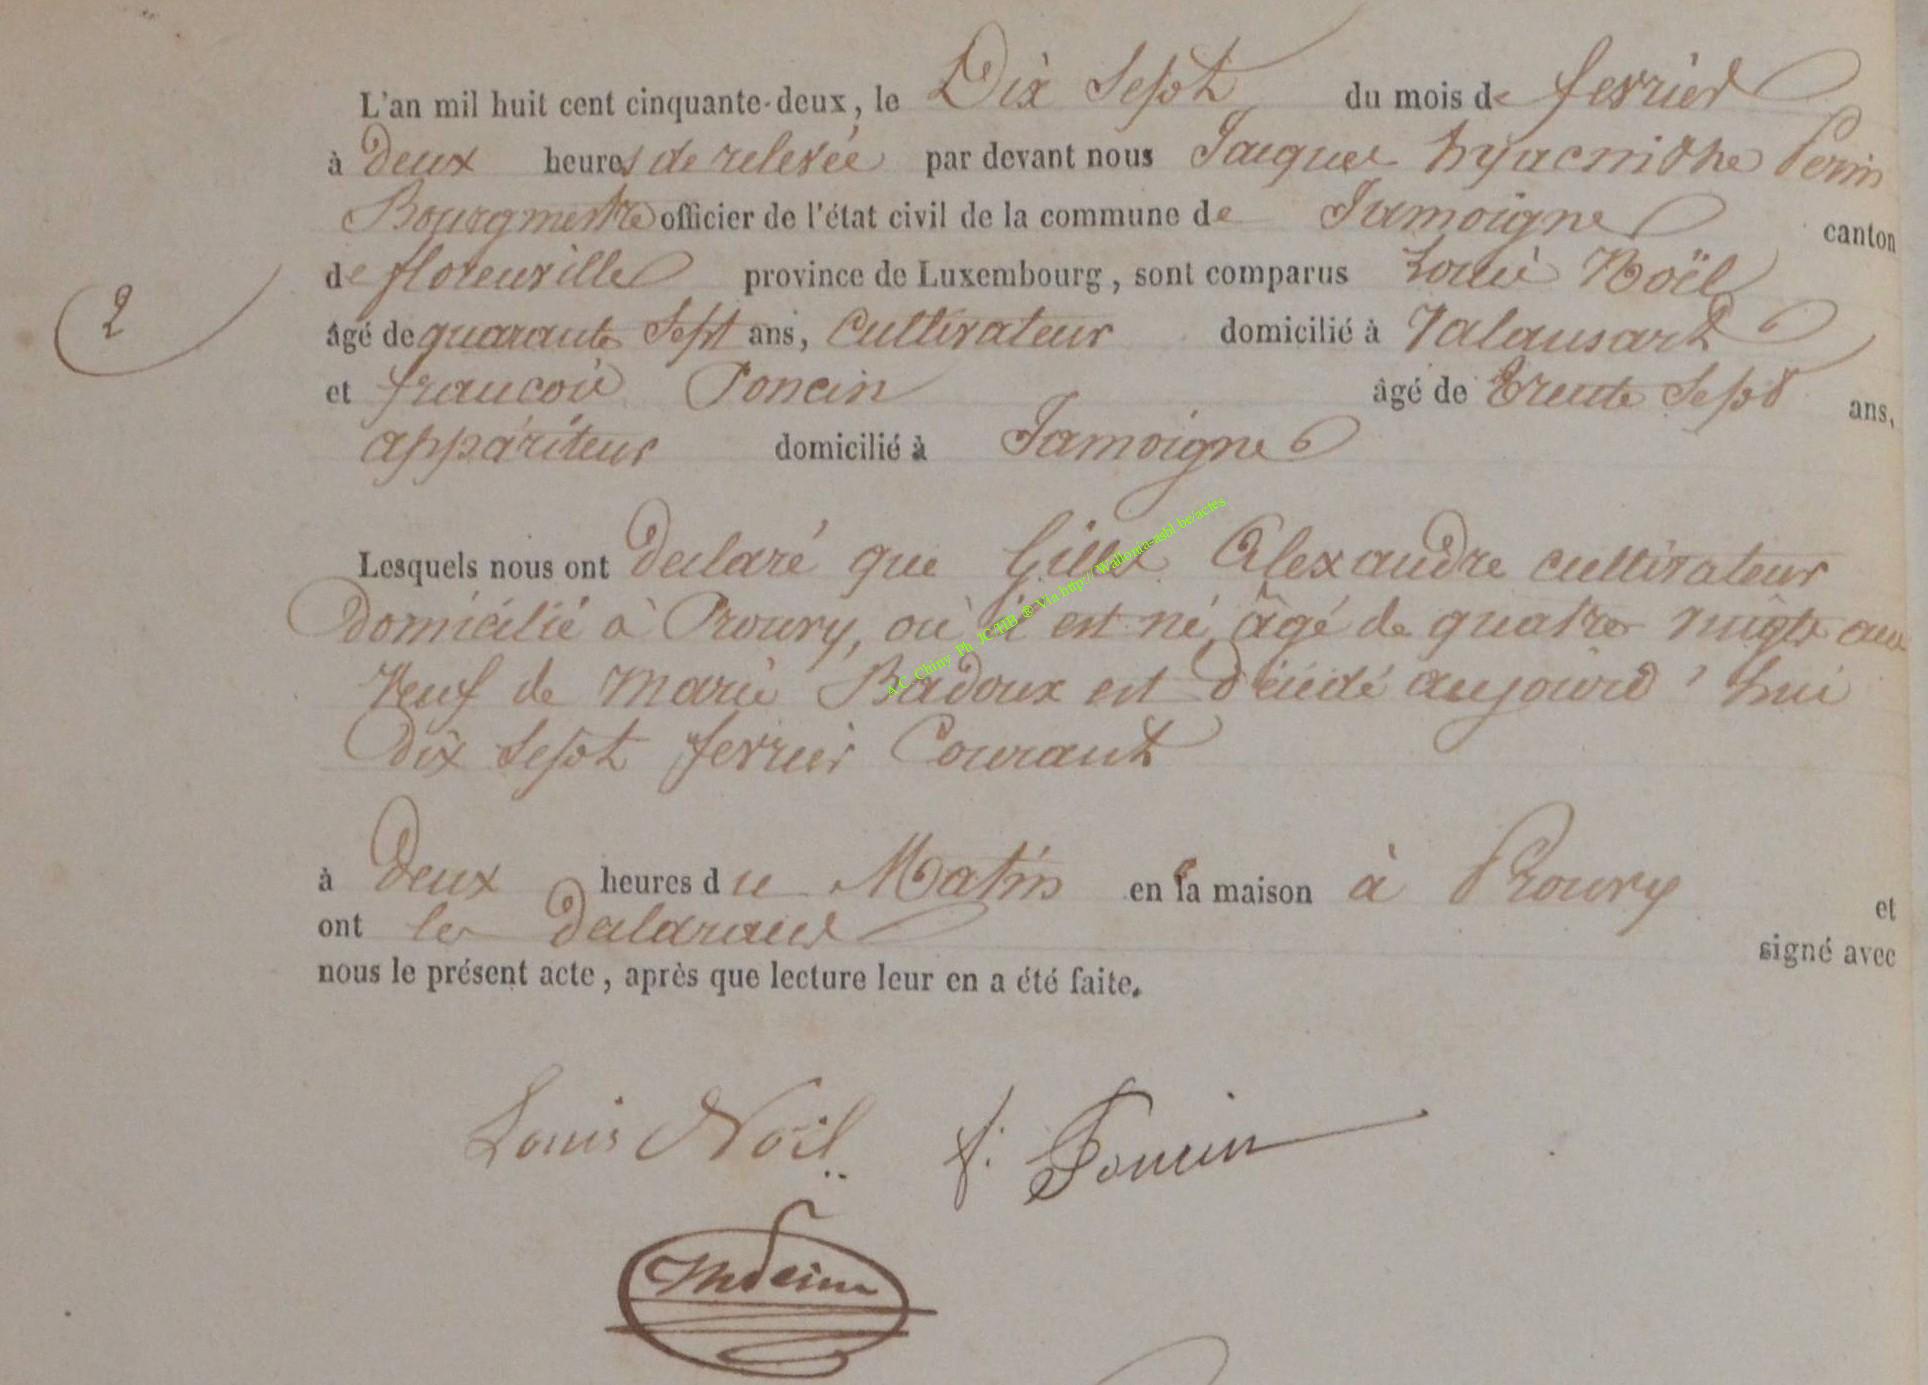 L'an mil huit cent cinquante-deux, le Dix Sept du mois de fevrier
à Deux heures de relevée par devant nous Jacques hyacinthe Perin
Bourgmestre officier de l'état civil de la commune de Jamoigne canton
de florenville province de Luxembourg, sont comparus Louis Noël
2
âgé de quarante Sept ans, Cultivateur domicilié à Valansart
et francois Poncin âgé de trente Sept ans,
appariteur domicilié à Jamoigne
Lesquels nous ont declaré que Gilles Alexandre cultivateur
Domicilié à Prouvy, où il est né, âgé de quatre vingts ans
Veuf de Marie Badoux est décédé aujourd'hui
Dix Sept fevrier Courant
à Deux heures du Matin en sa maison à Prouvy et
ont les Declarants signé avec
nous le présent acte, après que lecture leur en a été faite.
Louis Noël f. Poncin
A.C. Chiny Ph JC/HB ® Via http://Wallonia-asbl.be/actes